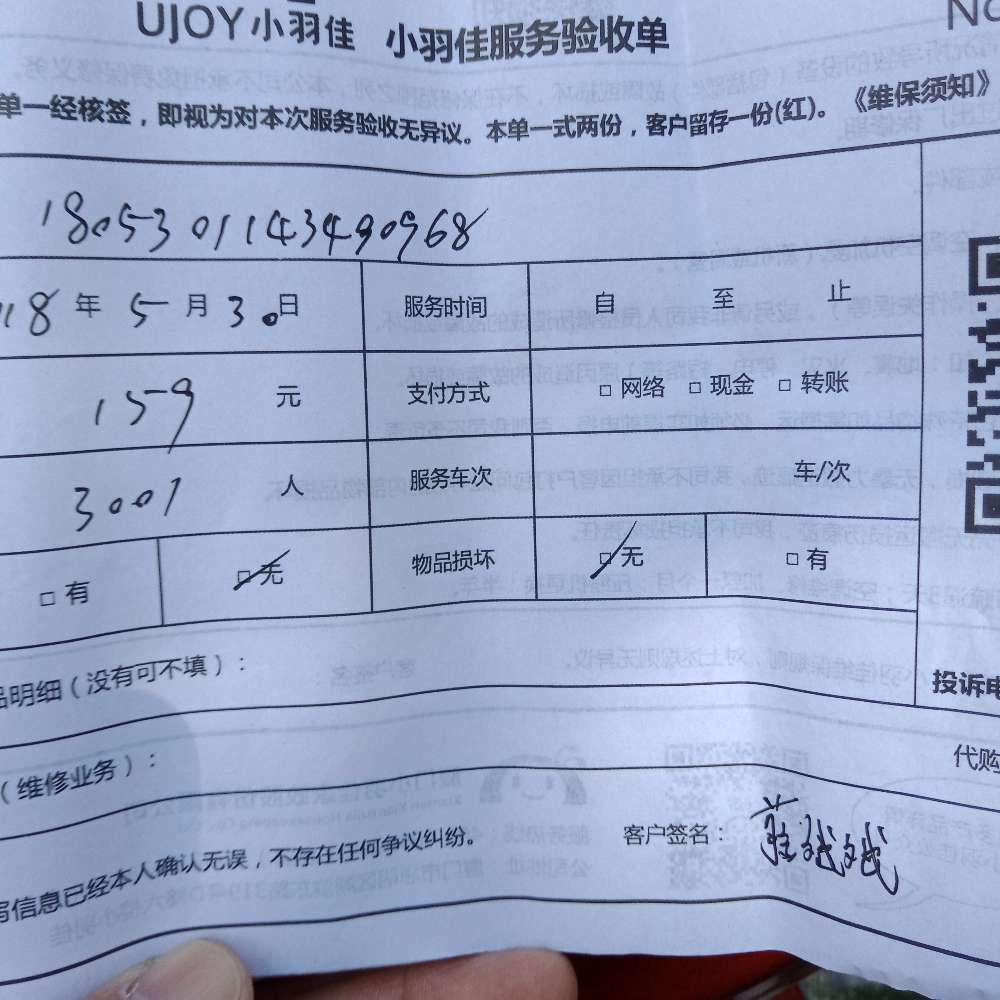 UJOY小羽佳 小羽佳服务验收单 No
单一经核签，即视为对本次服务验收无异议。本单一式两份，客户留存一份(红)。《维保须知》
1805301143490968
18年5月30日 服务时间 自 至 止
159元 支付方式 □网络 □现金 □转账
3001人 服务车次 车/次
□有 □无 物品损坏 □无 □有
品明细（没有可不填）：
投诉电
（维修业务）：
代购
客户签名：
写信息已经本人确认无误，不存在任何争议纠纷。